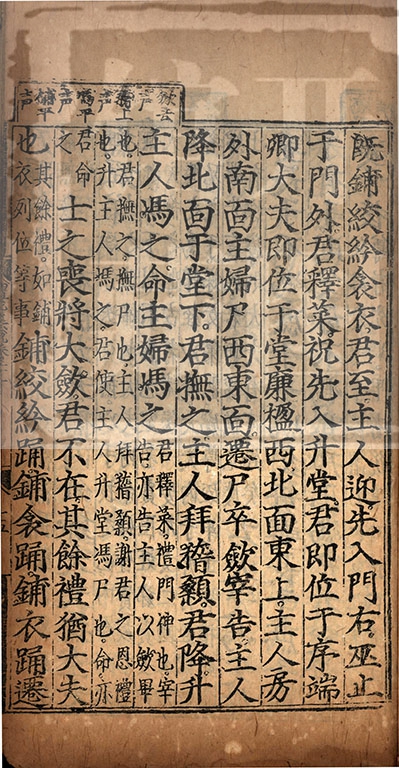 既鋪絞紟衾衣君至主人迎先入門右巫止
于門外君釋菜祝先入升堂君即位于序端
卿大夫即位于堂廉楹西北面東上主人房
外南面主婦尸西東面遷尸卒斂宰告主人
降北面于堂下君撫之主人拜稽顙君降升
主人馮之命主婦馮之君釋菜禮門神也宰
告亦告主人以斂畢
也君撫之撫尸也主人拜稽顙謝君之恩禮
也升主人馮之君使主人升堂馮尸也命亦
君命
之
士之喪將大斂君不在其餘禮猶大夫
也
其餘禮如鋪
衣列位等事
鋪絞紟踊鋪衾踊鋪衣踊遷
鋪平
声